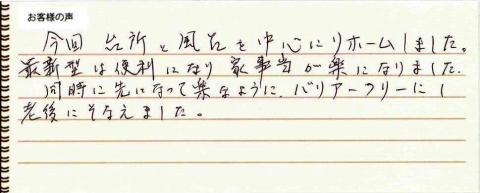 お客様の声
今回 台所と風呂を中心にリホームしました。
最新型は便利になり家事も が楽になりました.
同時に先になって楽なように、バリアーフリーにし
老後にそなえました。